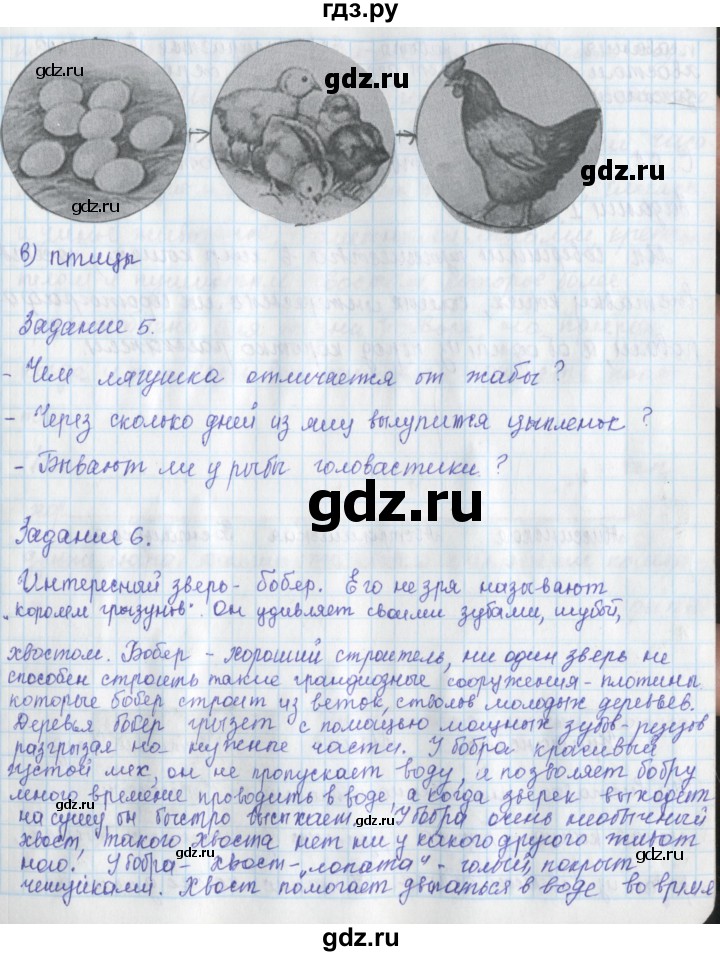 гдз.ру
gdz.ru
gdz.ru
gdz.ru
gdz.ru
gdz.ru
в) птицы
Задание 5.
- Чем лягушка отличается от жабы?
- Через сколько дней из яиц вылупится цыпленок?
- Бывают ли у рыбы головастики?
gdz.ru
Задание 6.
Интересный зверь - бобер. Его не зря называют
„королем грызунов". Он удивляет своими зубами, шубой,
хвостом. Бобер - хороший строитель, ни один зверь не
способен строить такие грандиозные сооружения - плотины
которые бобер строит из веток, стволов молодых деревьев.
Деревья бобер грызет с помощью мощных зубов-резцов
разгрызая на нужные части. У бобра красивый
густой мех, он не пропускает воду, и позволяет бобру
много времени проводить в воде, а когда зверек выходит
на сушу он быстро высыхает. У бобра очень необычный
хвост, такого хвоста нет ни у какого другого живот
ного. У бобра - хвост - „лопата" - голый, покрыт
чешуйками. Хвост помогает двигаться в воде во время
gdz.ru
gdz.ru